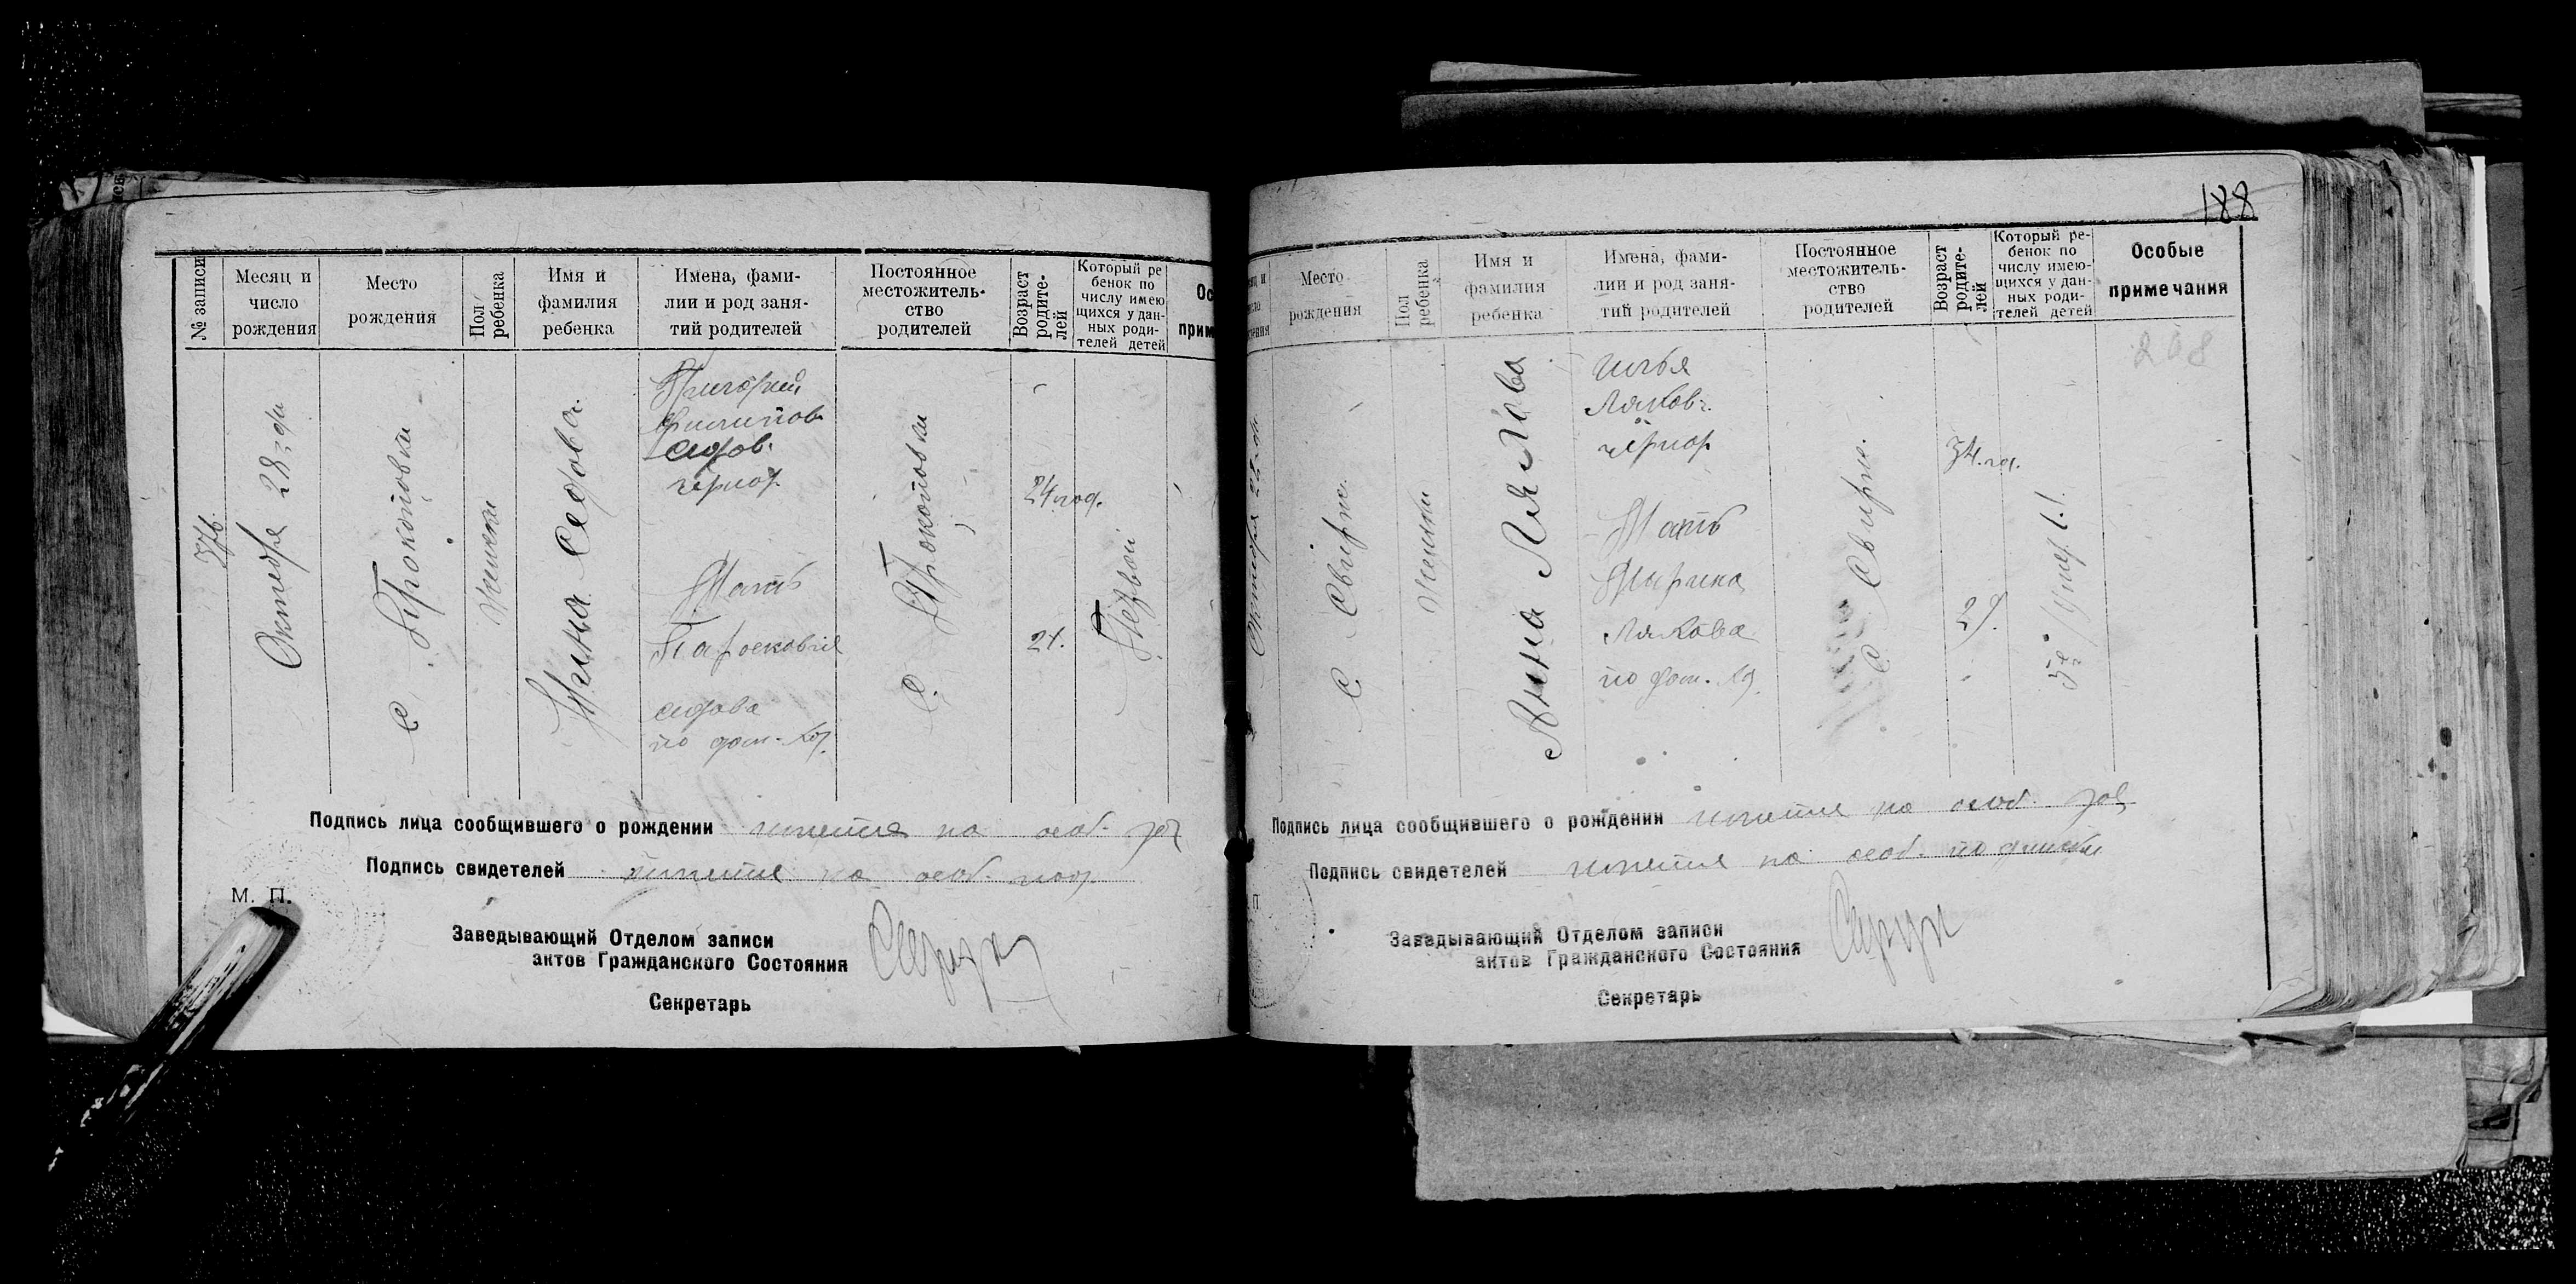 № записи
Месяц и
число
рождения
Место
рождения
Пол
ребенка
Имя и
фамилия
ребенка
Имена, фами-
лии и род заня-
тий родителей
Постоянное
местожитель-
ство
родителей
Возраст
родите-
лей
Который ре
бенок по
числу имею
щихся у дан-
ных роди-
телей детей
Ос
прим
376.
Октября 28го дн
С Прокоповки
Женски
Ирина Седова.
Григорий
Филипов
Седов.
чернор.
Мать
Парасковия
Седова
по дом. хоз.
С. Прокоповки
24 год.
21.
Первой
Подпись лица сообщившего о рождении имеится на особ.
Подпись свидетелей имеится на особ. под.
М. П.
Заведывающий Отделом записи
актов Гражданского Состояния
Секретарь
188
Место
рождения
Пол
ребенка
Имя и
фамилия
ребенка
Имена, фами-
лии и род заня-
тий родителей
Постоянное
местожитель-
ство
родителей
Возраст
родите-
лей
Который ре-
бенок по
числу имею-
щихся у дан-
ных роди-
телей детей
Особые
примечания
268
Октября
С. Свирне.
Женски
Анна Лякова
Илья
Ляков.
чернор
Мать
Марина
Лякова
по дом. хоз.
С Свирне.
34. го.
29.
5й
Подпись лица сообщившего о рождении имеится на особ.
Подпись свидетелей имеится на особ. подписки
П
Заведывающий Отделом записи
актов Гражданского Состояния
Секретарь